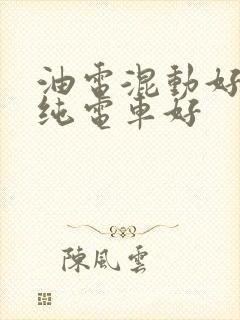 油電混動好
純電車好
陳風雲